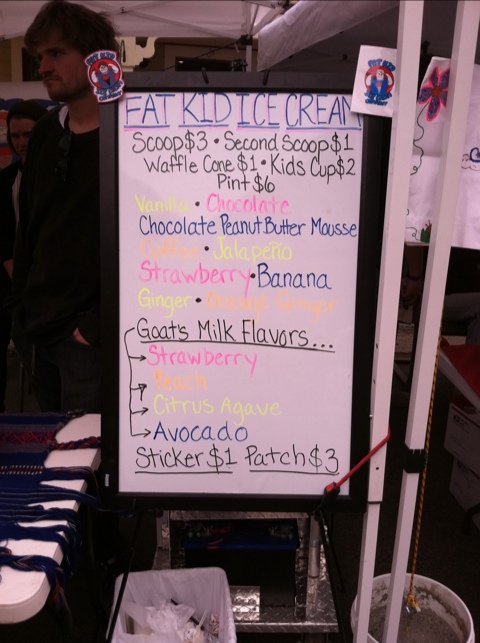 FAT KID ICE CREAM
Scoop $3 • Second Scoop $1
Waffle Cone $1 • Kids Cup $2
Pint $6
Vanilla • Chocolate
Chocolate Peanut Butter Mousse
Coffee • Jalapeño
Strawberry • Banana
Ginger • Orange Ginger
Goat's Milk Flavors...
Strawberry
Peach
Citrus Agave
Avocado
Sticker $1 Patch $3
FAT KID
FAT KID